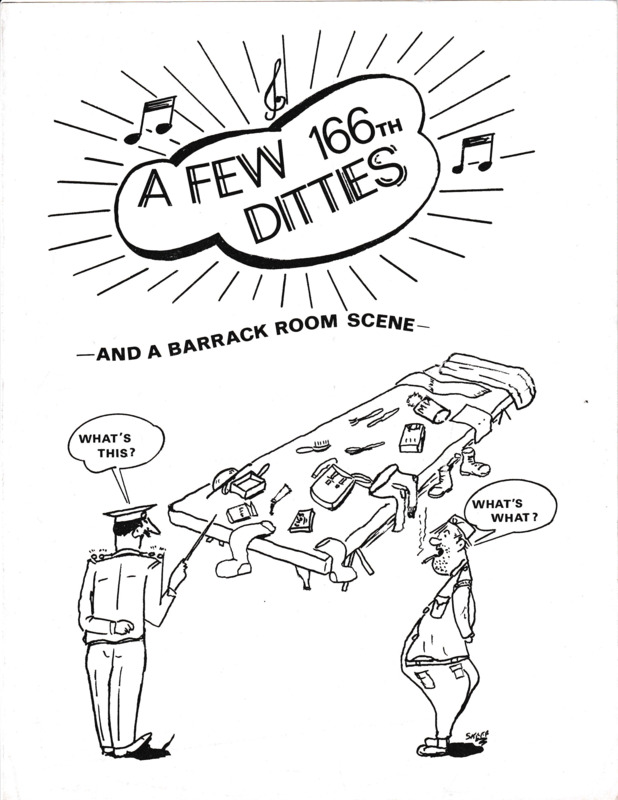 A FEW 166TH
DITTIES
—AND A BARRACK ROOM SCENE—
WHAT'S
THIS?
WHAT'S
WHAT?